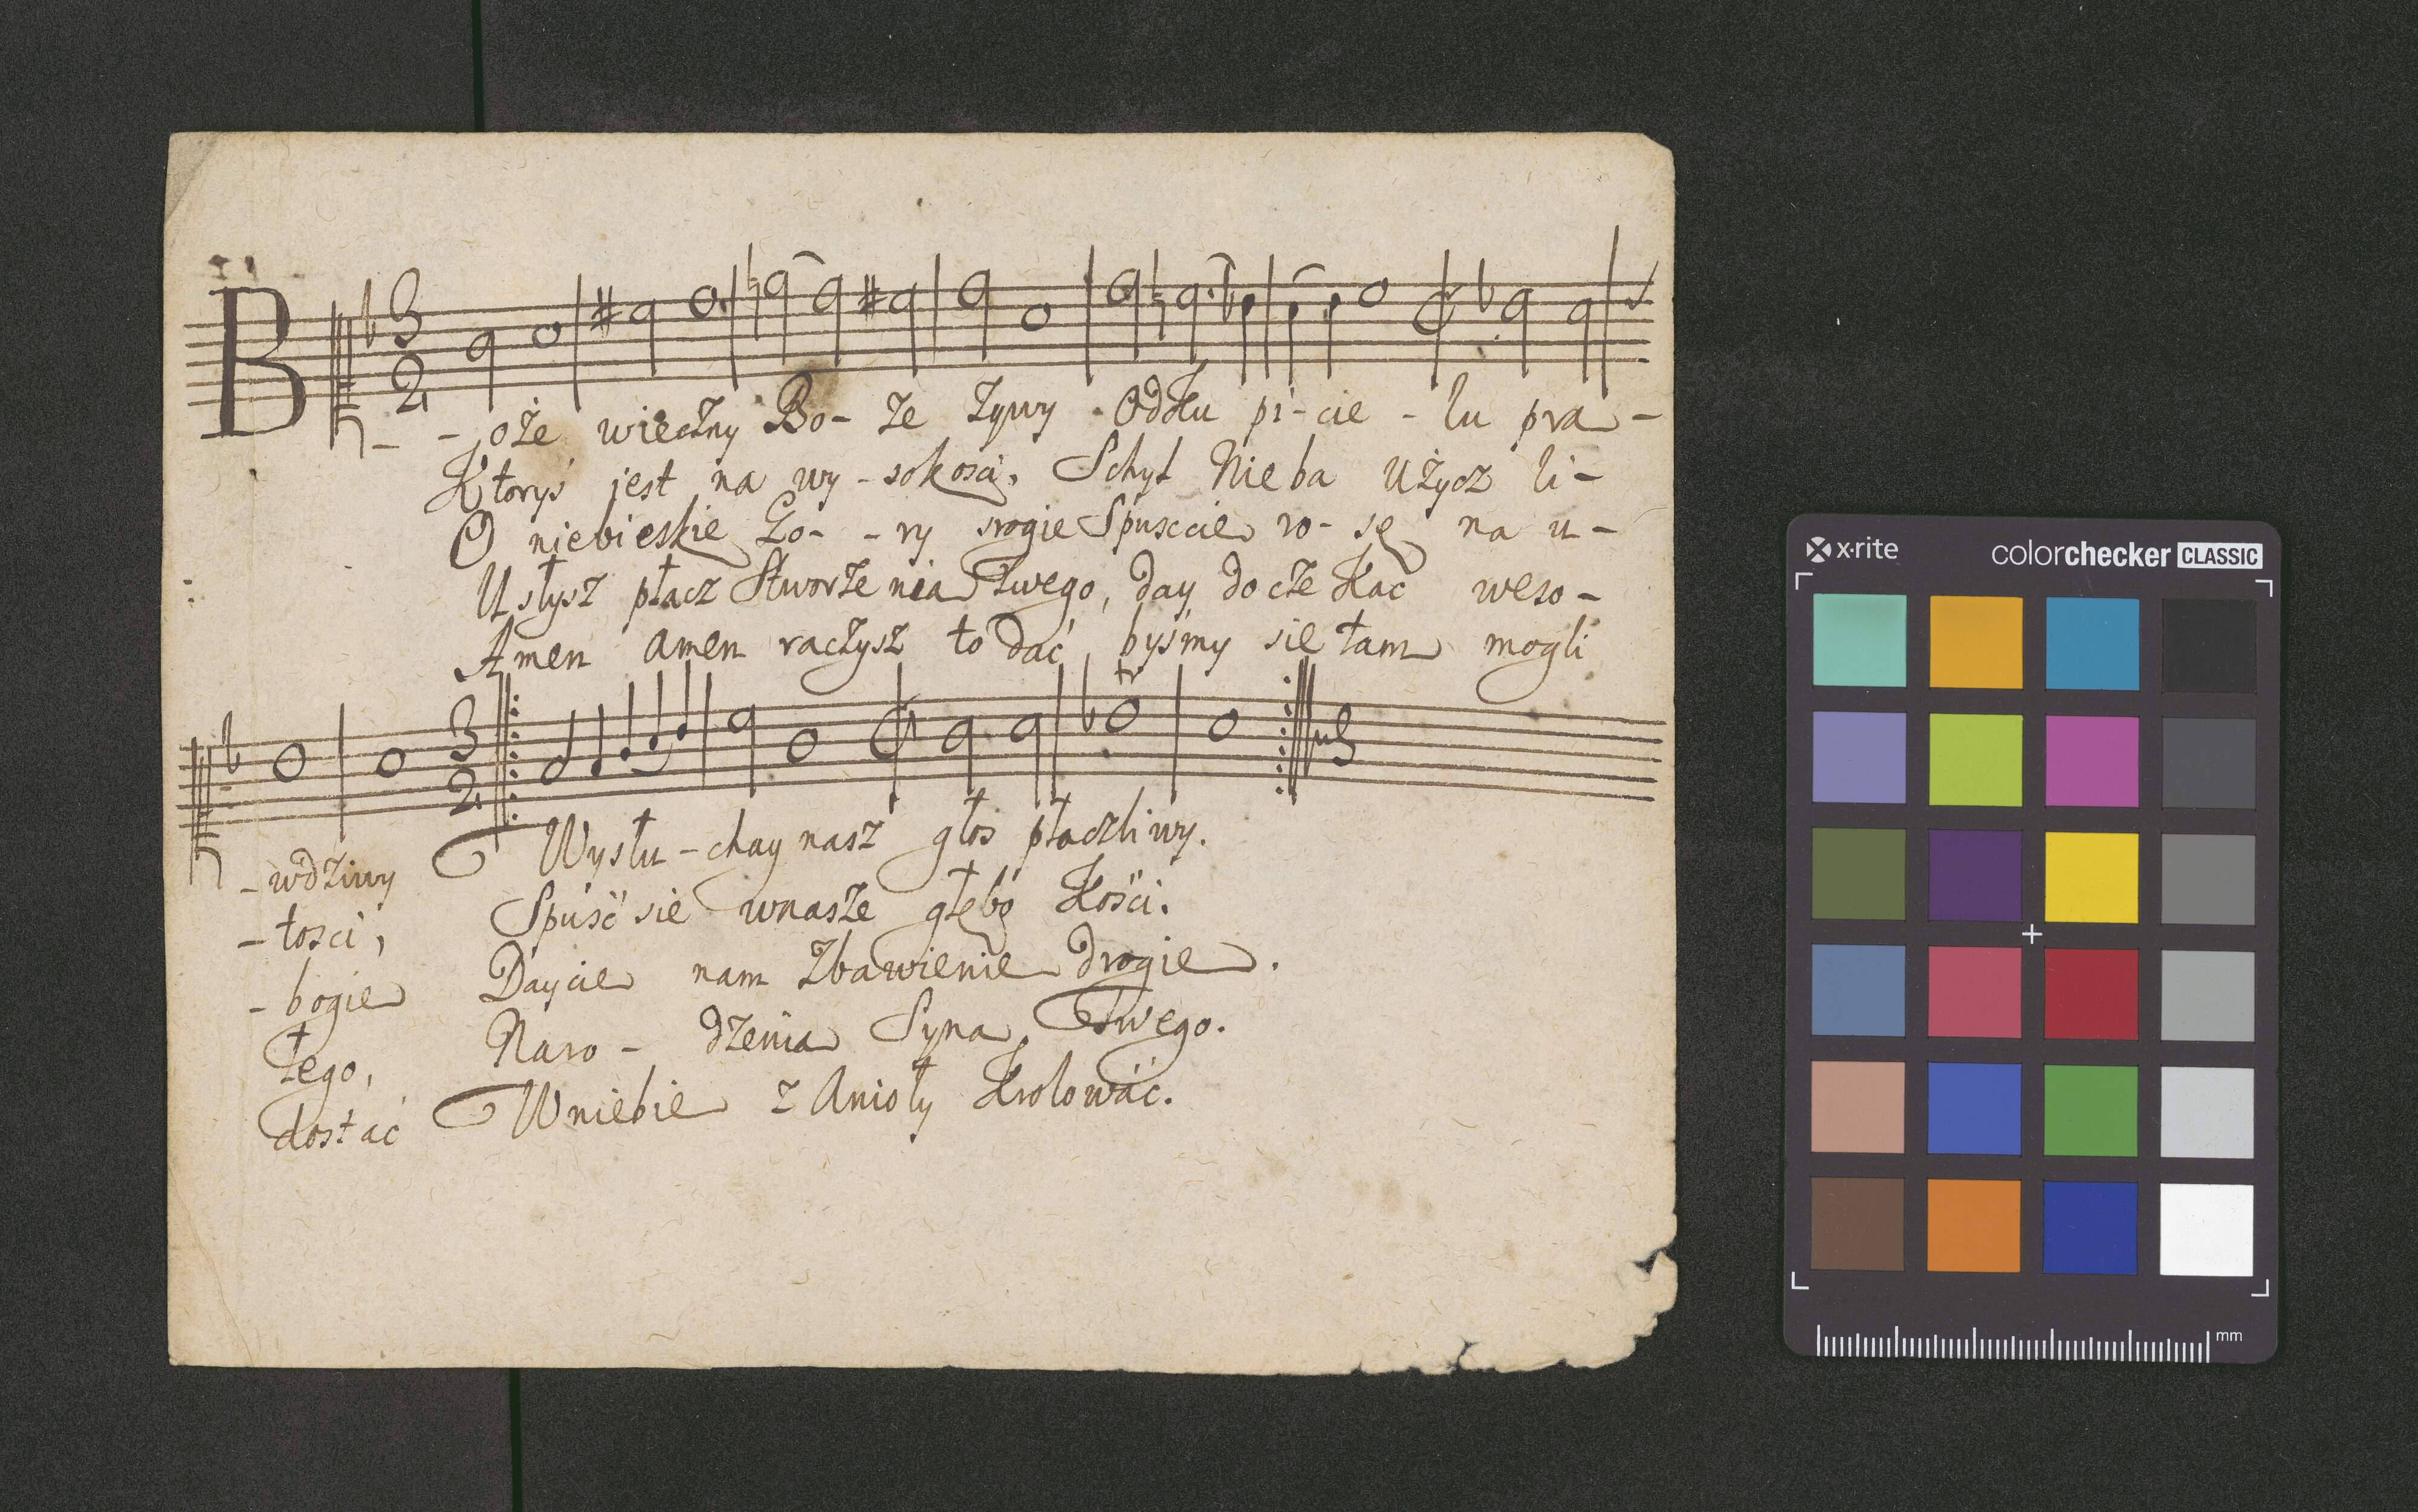 B
3
2
- - oże wieczny Bo- że żywy. Odku pi-cie - lu pra -
Ktoryś jest na wy - sokosci, Schyl Nieba Użycz li -
O niebieskie Go- - ry srogie Spuscie ro- sę na u -
Usłysz płacz Stworze nia Twego, day docze kac weso -
Amen amen raczysz to dać, byśmy sie tam mogli
tr
3
2
- wdziwy Wysłu - chay nasz głos płaczliwy.
- tosci, Spuść sie wnasze głębo kości.
- bogie Daycie nam Zbawienie drogie.
łego, Naro - dzenia Syna Twego.
dostać Wniebie z Anioły Krolowác.
x·rite colorchecker CLASSIC
mm